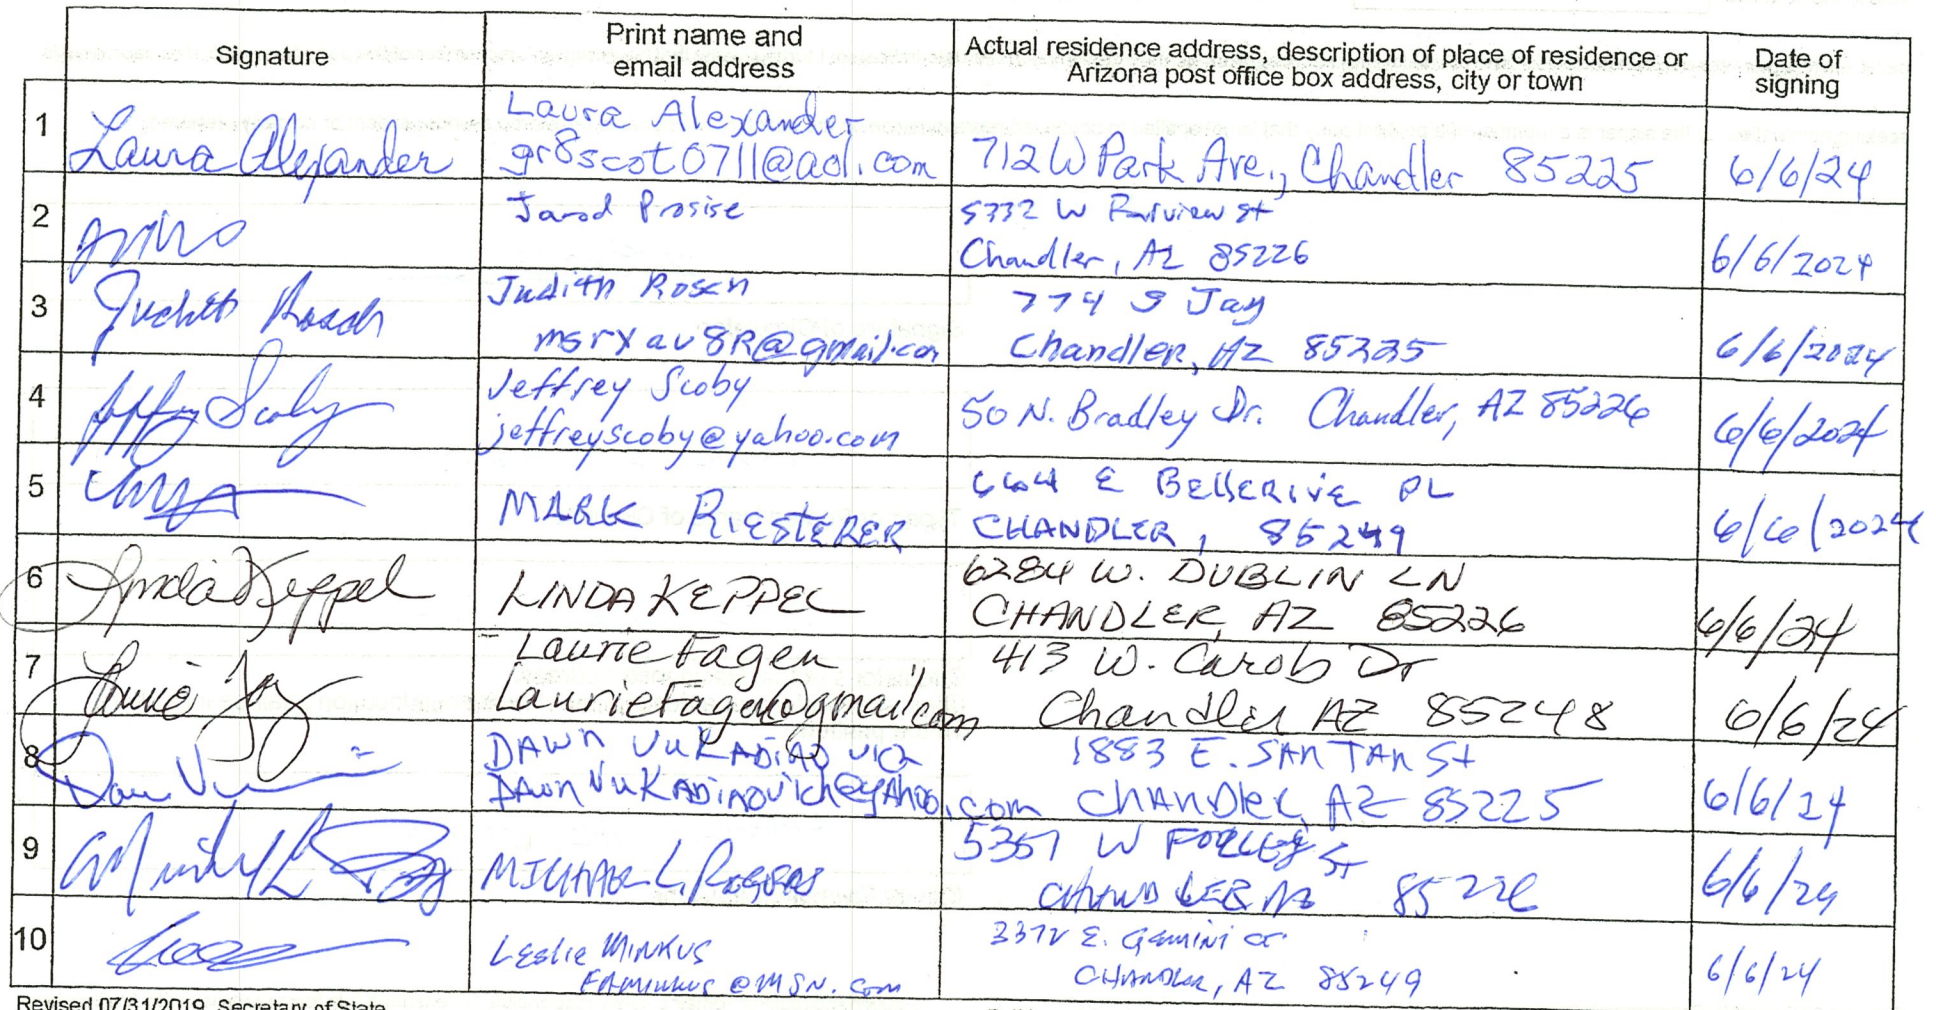 Signature
Print name and
email address
Actual residence address, description of place of residence or
Arizona post office box address, city or town
Date of
signing
1
Laura Alexander
Laura Alexander
gr8scot0711@aol.com
712 W Park Ave., Chandler 85225
6/6/24
2
Jarod Prosise
5332 W St
Chandler, AZ 85226
6/6/2024
3
Judith Rosen
Judith Rosen
msrxav8R@gmail.com
774 S Jay
Chandler, AZ 85225
6/6/2024
4
Jeffrey Scoby
Jeffrey Scoby
jeffreyscoby@yahoo.com
50 N. Bradley Dr. Chandler, AZ 85226
6/6/2024
5
MARK RIESTERER
664 E BELLERIVE PL
CHANDLER, 85249
6/6/2024
6
Linda Keppel
LINDA KEPPEL
6284 W. DUBLIN LN
CHANDLER, AZ 85226
6/6/24
7
Laurie Fagen
LaurieFagen@gmail.com
413 W. Carob Dr
Chandler AZ 85248
6/6/24
8
DAWN VUKADINOVICH
DAWNVUKADINOVICH@YAHOO.com
1883 E. SAN TAN St
CHANDLER, AZ 85225
6/6/24
9
MICHAEL L. ROGERS
5357 W St
CHANDLER AZ 85226
6/6/24
10
Leslie MINKUS
@MSN.com
3372 E. Gemini Ct.
CHANDLER, AZ 85249
6/6/24
Revised 07/31/2019, Secretary of State